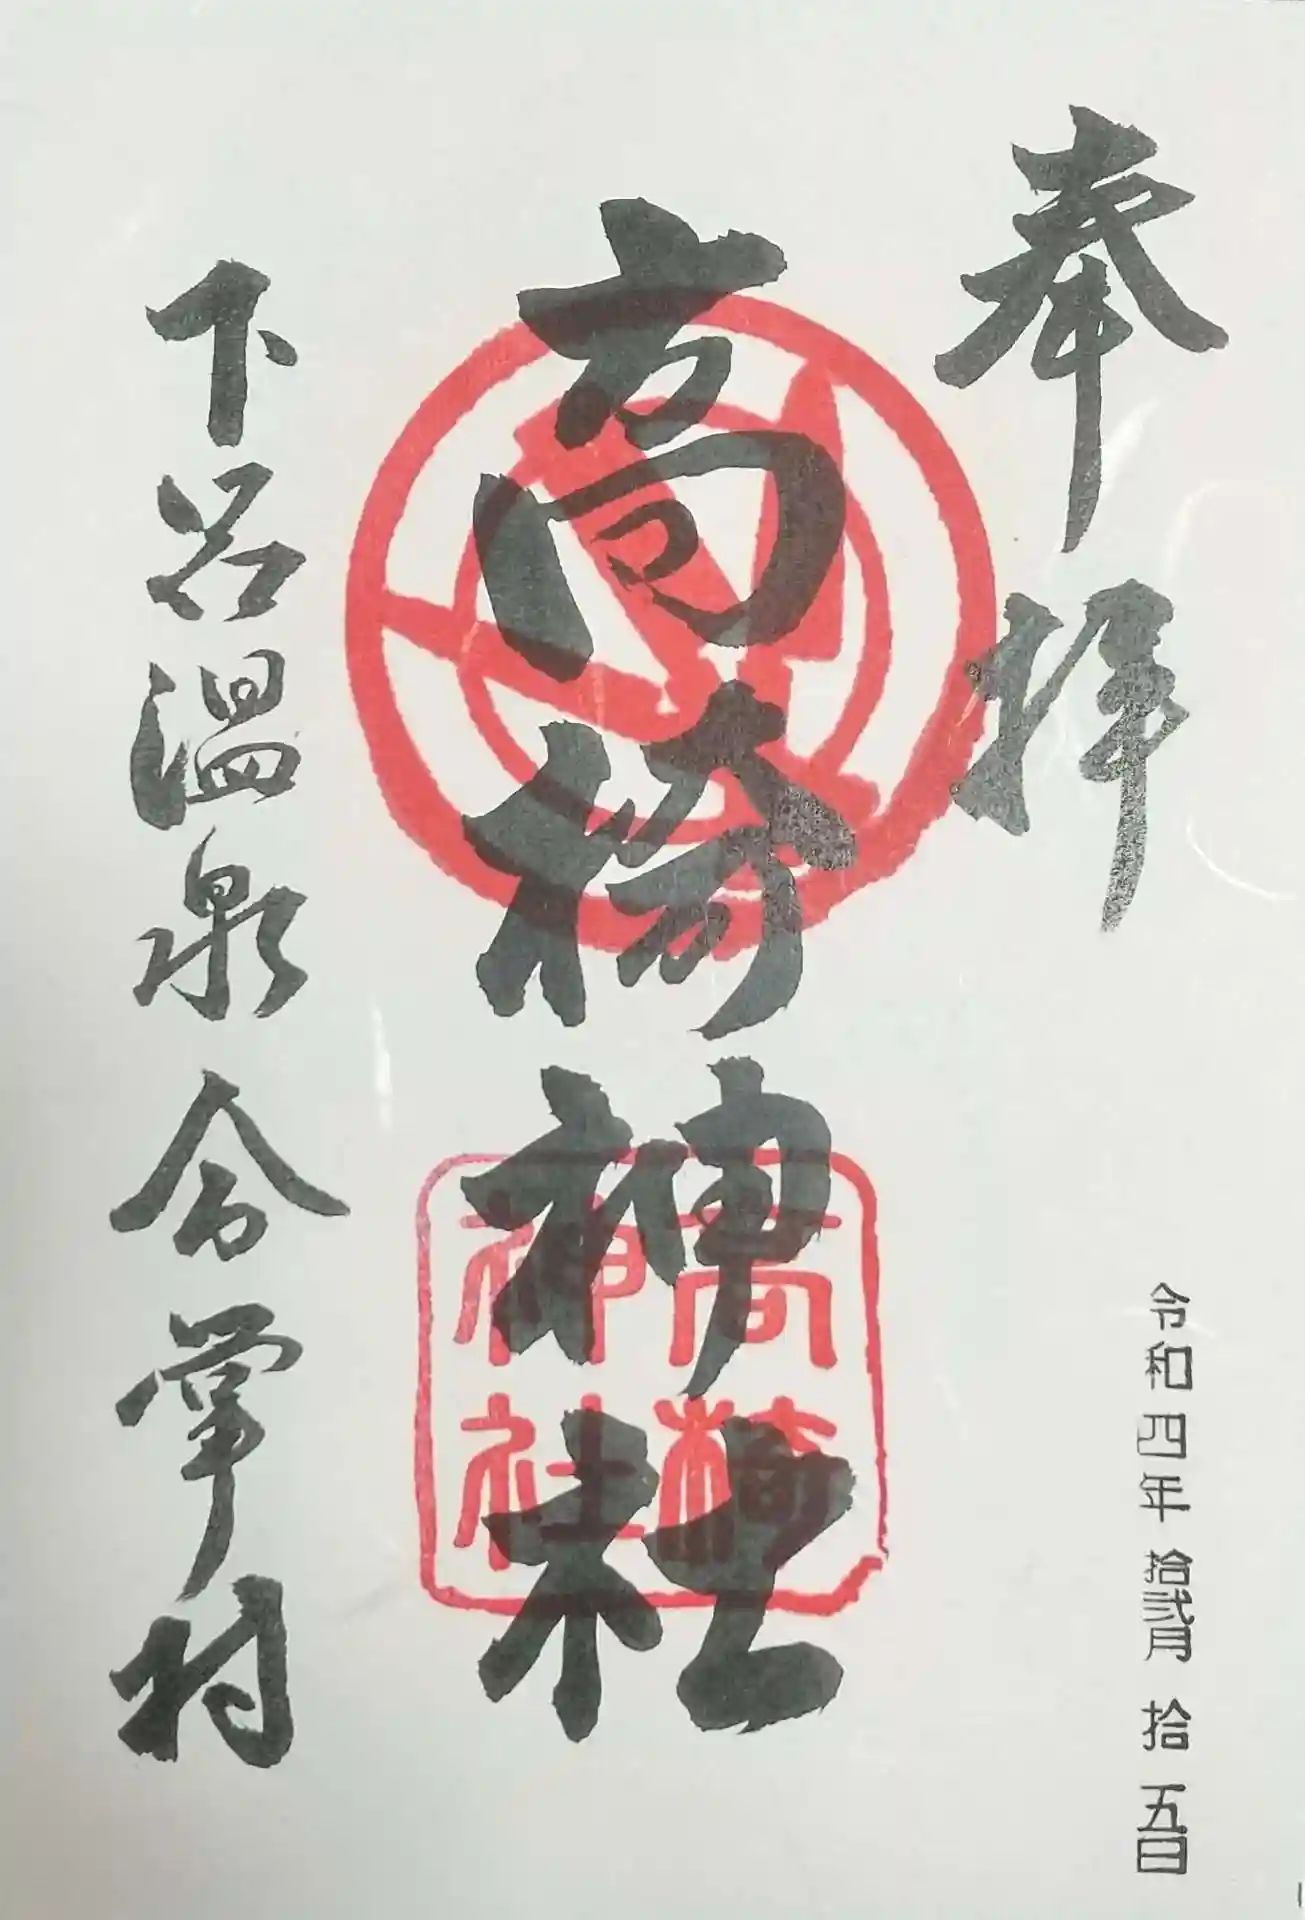 奉拝
令和四年 拾弐月 拾五日
高橋神社
下呂温泉合掌村
高橋
神社